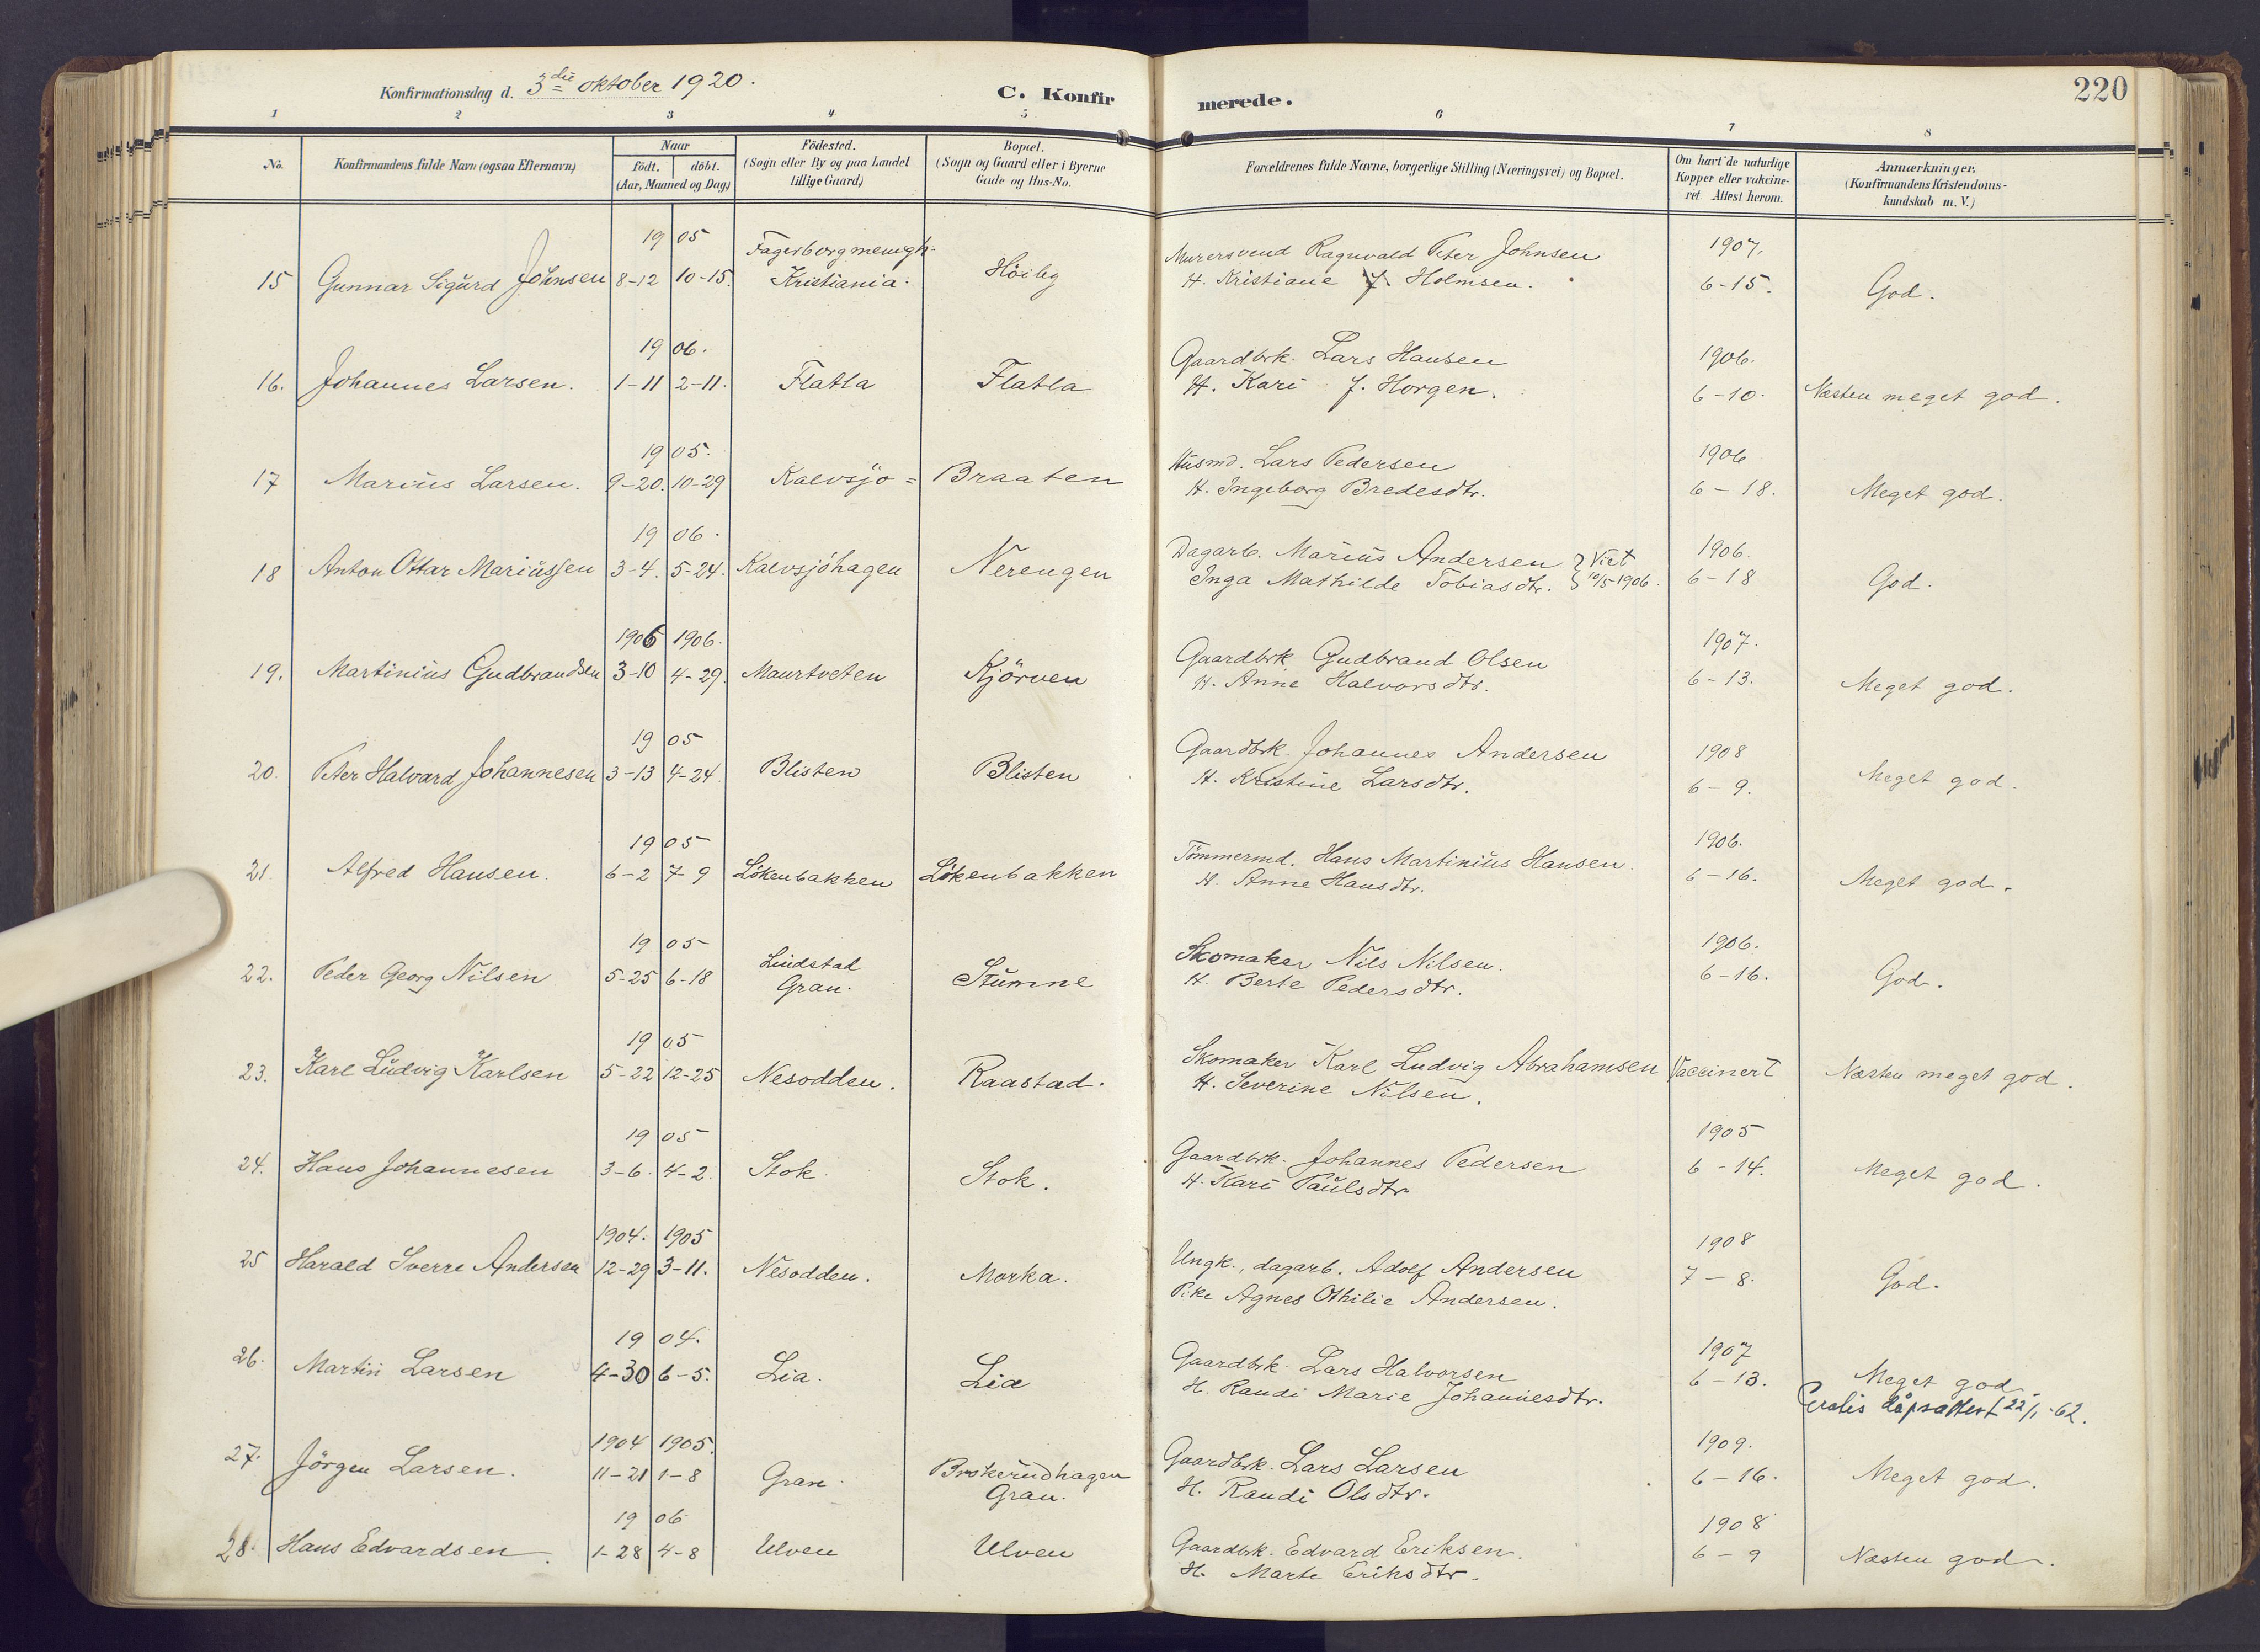 220
Konfirmationsdag d. 3die oktober 1920.
C. Konfirmerede.
1 2 3 4 5 6 7 8
No. | Konfirmandens fulde Navn (ogsaa Efternavn) | Naar födt. döbt. (Aar, Maaned og Dag) | Födested. (Sogn eller By og paa Landet tillige Gaard) | Bopæl. (Sogn og Gaard eller i Byerne Gade og Hus-No. | Forældrenes fulde Navne, borgerlige Stilling (Næringsvei) og Bopæl. | Om havt de naturlige Kopper eller vakcineret Attest herom. | Anmærkninger. (Konfirmandens Kristendomskundskab m. V.)
19 05 Fagerborg menigh. Murersvend Ragnvald Peter Johnsen 1907.
15 Gunnar Sigurd Johnsen 8-12 10-15. Kristiania. Höiby H. Kristiane f. Holmsen. 6-15. God.
19 06. Gaardbrk. Lars Hansen 1906.
16. Johannes Larsen. 1-11 2-11. Flatla Flatla H. Kari f. Horgen. 6-10. Næsten meget god.
19 05. Husmd. Lars Pedersen 1906
17 Marius Larsen. 9-20. 10-29 Kalvsjö= Braaten H. Ingeborg Bredesdtr. 6-18. Meget god.
19 06. Dagarb. Marius Andersen } Viet 1906.
18 Anton Ottar Mariussen 3-4. 5-24. Kalvsjöhagen Nerengen Inga Mathilde Tobiasdtr. } 10/5 1906. 6-18 God.
1906 1906. Gaardbrk. Gudbrand Olsen 1907.
19. Martinius Gudbrandsen 3-10 4-29. Maurtveten Kjörven H. Anne Halvorsdtr. 6-13. Meget god.
19 05 Gaardbrk. Johannes Andersen 1908
20. Peter Halvard Johannesen 3-13 4-24. Blisten Blisten H. Kristine Larsdtr. 6-9. Meget god.
19 05 Tömmermd. Hans Martinius Hansen. 1906.
21. Alfred Hansen. 6-2 7-9 Lökenbakken Lökenbakken H. Anne Hansdtr. 6-16. Meget god.
19 05 Lindstad Skomaker Nils Nilsen. 1906.
22. Peder Georg Nilsen 5-25 6-18 Gran. Stumne H. Berte Pedersdtr. 6-16. God.
19 05 Skomaker Karl Ludvig Abrahamsen
23. Karl Ludvig Karlsen 5-22 12-25 Nesodden. Raastad. H. Severine Nilsen. Vaccinert Næsten meget god.
19 05 Gaardbrk. Johannes Pedersen 1905
24. Hans Johannesen 3-6. 4-2 Stok. Stok. H. Kari Paulsdtr 6-14. Meget god.
1904. 1905 Ungk., dagarb. Adolf Andersen 1908
25 Harald Sverre Andersen 12-29 3-11. Nesodden. Morka. Pike Agnes Othilie Andersen. 7-8. God.
19 04. Gaardbrk. Lars Halvorsen 1907
26. Martin Larsen 4-30 6-5. Lia. Lia H. Randi Marie Johannesdtr. 6-13. Meget god
Gratis dåpsattest 22/1-62.
1904 1905. Gaardbrk. Lars Larsen 1909.
27. Jörgen Larsen. 11-21 1-8 Gran. Brökerudhagen Gran. H. Randi Olsdtr. 6-16. Meget god.
19 06 Gaardbrk. Edvard Eriksen. 1908
28. Hans Edvardsen. 1-28 4-8 Ulven Ulven H. Marte Eriksdtr. 6-9 Næsten god.